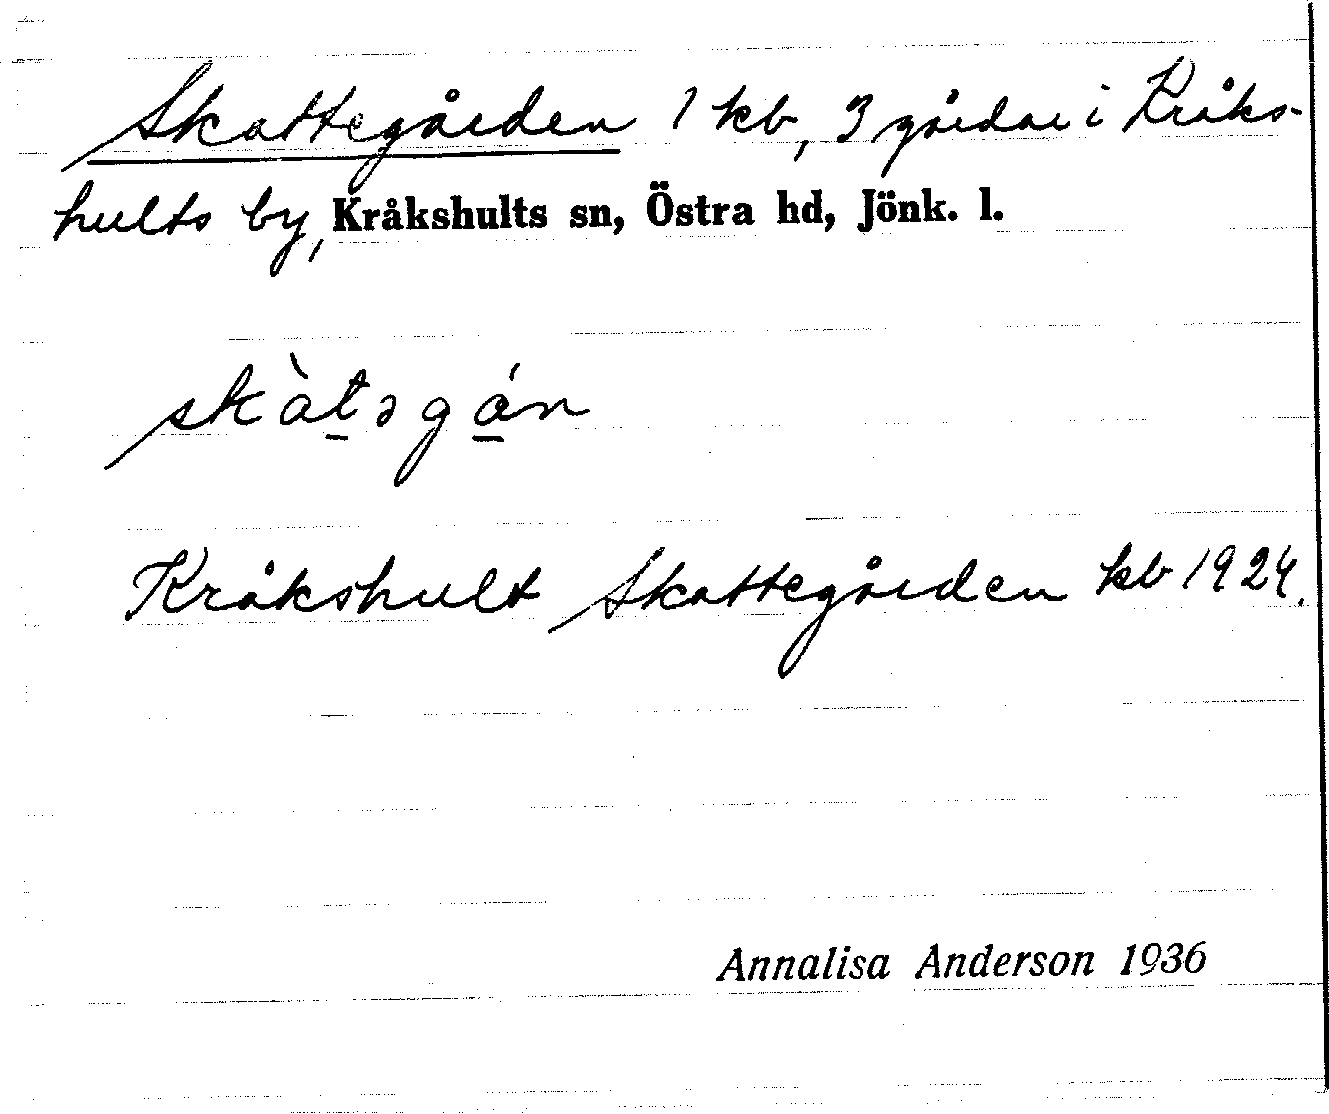 Skattegården 1 kb, 3 gårdar i Kråks-
hults by, Kråkshults sn, Östra hd, Jönk. l.
skàt̲əgá̲n
Kråkshult Skattegården kb 1924.
Annalisa Anderson 1936